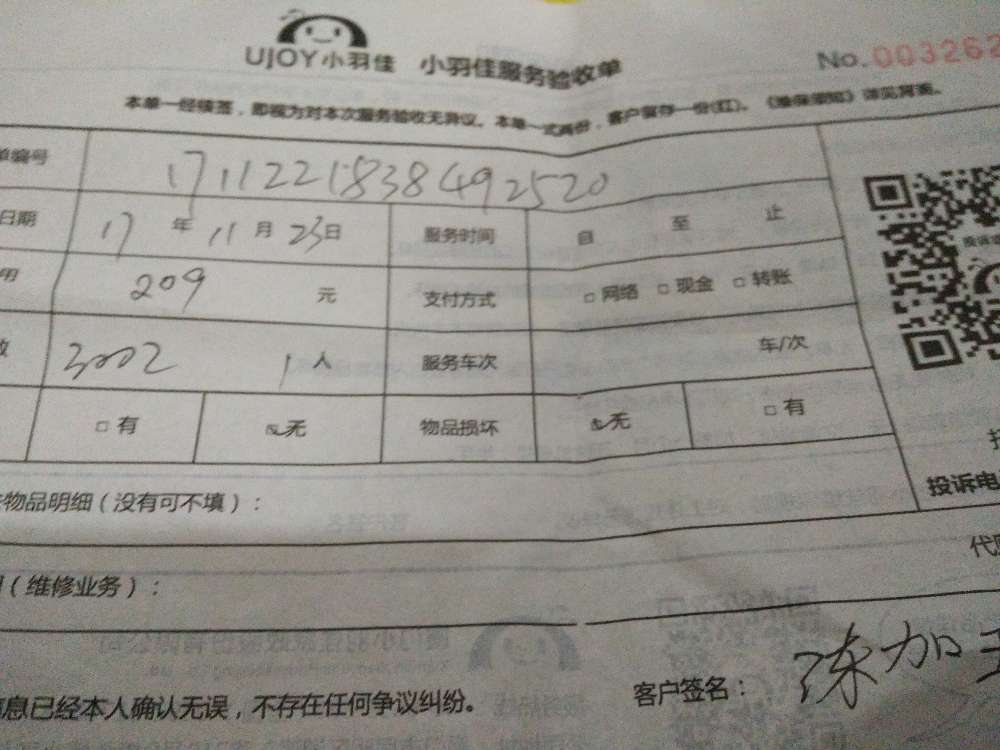 UJOY小羽佳 小羽佳服务验收单 No.003262
本单一经核签，即视为对本次服务验收无异议。本单一式两份，客户留存一份(红)。《维保须知》详见背面。
单编号 1711221838492520
日期 17 年 11 月 23日 服务时间 自 至 止
用 209 元 支付方式 □ 网络 □ 现金 □ 转账
数 3002 1人 服务车次 车/次
□ 有 ☑无 物品损坏 ☑无 □ 有
物品明细（没有可不填）：
投诉电
代
（维修业务）：
客户签名： 陈加
信息已经本人确认无误，不存在任何争议纠纷。